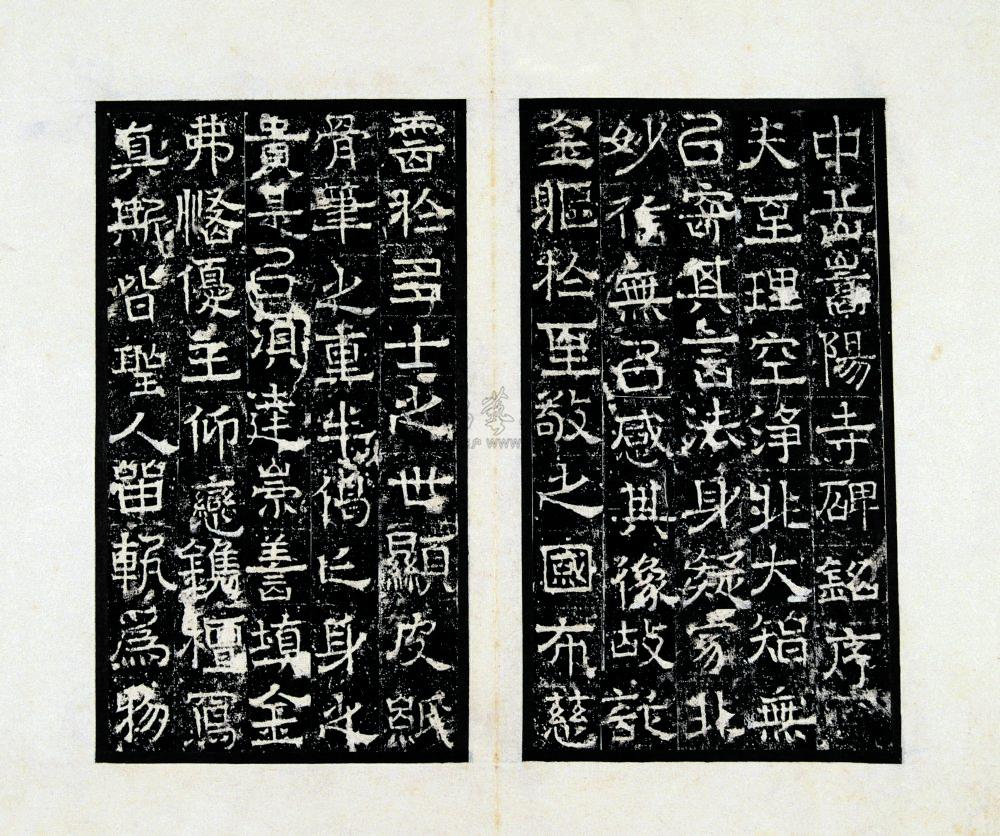 中岳嵩陽寺碑銘序
夫至理空淨非大智無
以寄其言法身凝寂非
妙信無以感其像故
金軀於至敬之國布慈
雲於多士之世顯皮紙
骨筆之重半偈亡身之
貴是以須達崇善填金
弗悋優主仰戀鐫檀寫
真斯皆聖人留軌為物